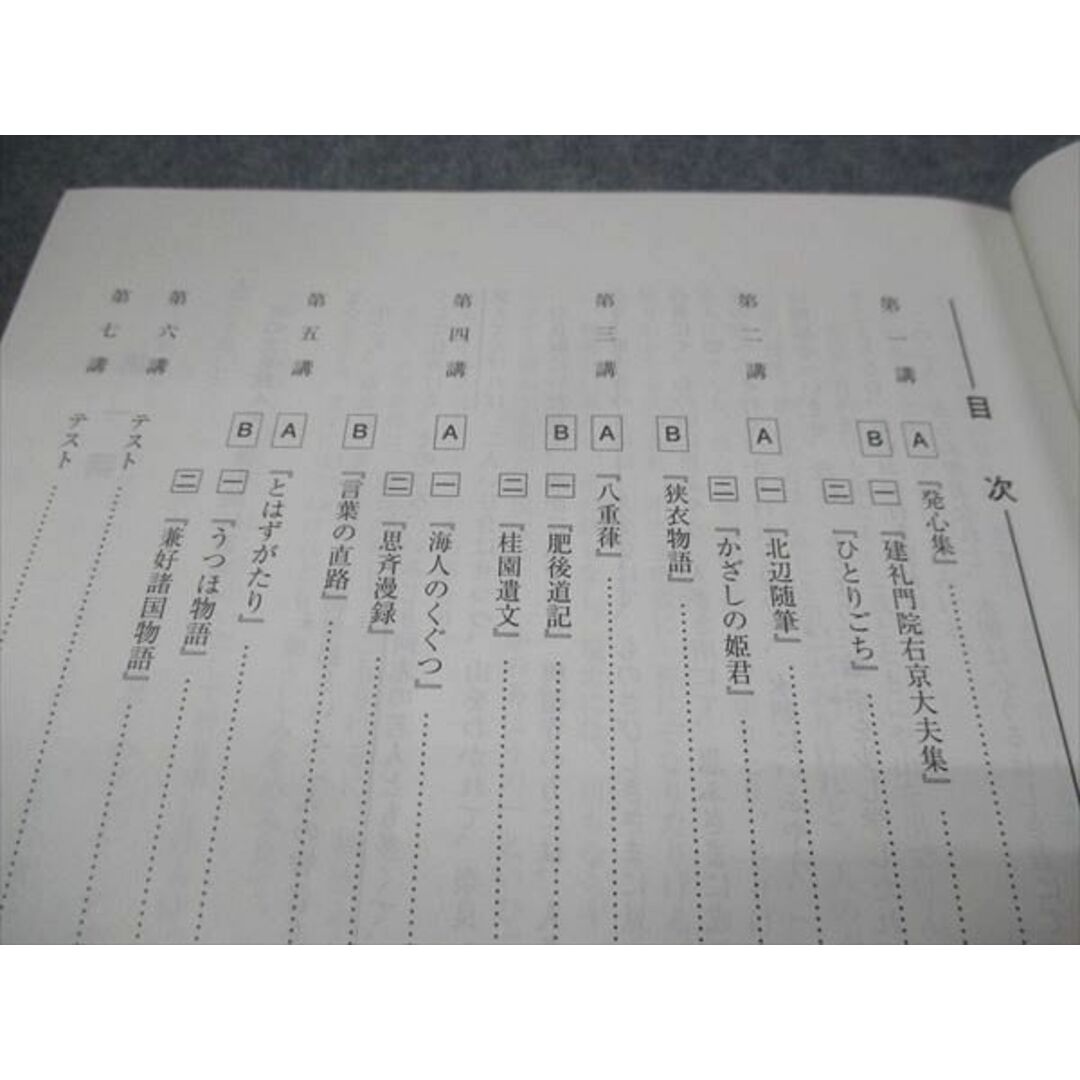 目次
第一講 A 『発心集』
B 一 『建礼門院右京大夫集』
二 『ひとりごち』
第二講 A 一 『北辺随筆』
二 『かざしの姫君』
B 『狭衣物語』
第三講 A 『八重葎』
B 一 『肥後道記』
二 『桂園遺文』
第四講 A 一 『海人のくぐつ』
二 『思斉漫録』
B 『言葉の直路』
第五講 A 『とはずがたり』
B 一 『うつほ物語』
二 『兼好諸国物語』
第六講 テスト
第七講 テスト